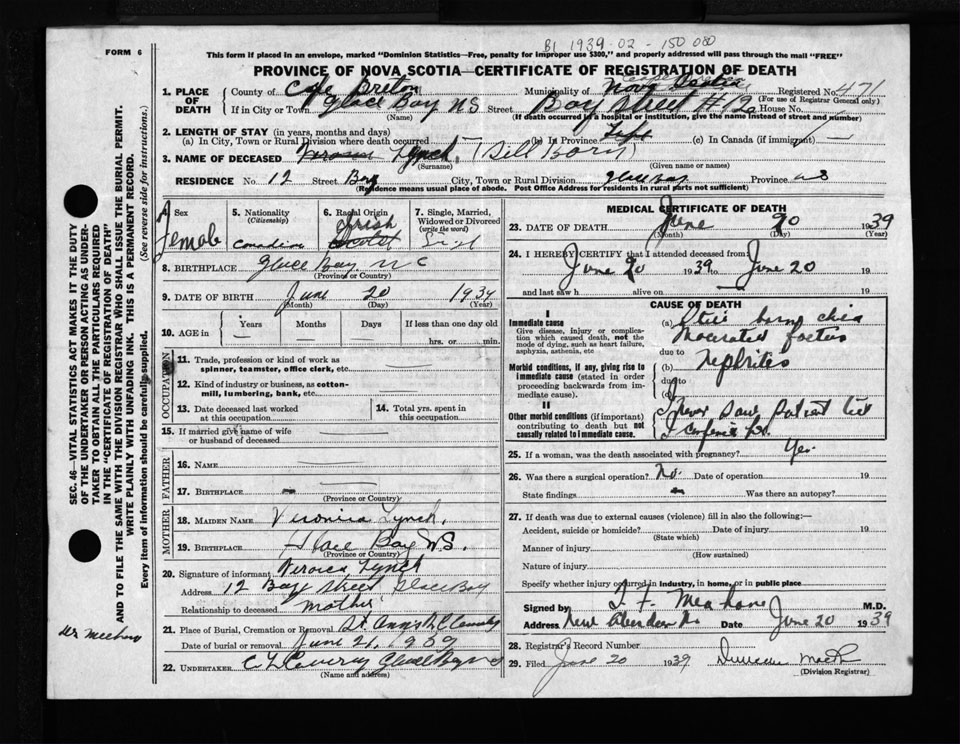 FORM 6
B1 1939 02 - 150 080
This form if placed in an envelope, marked "Dominion Statistics—Free, penalty for improper use $300," and properly addressed will pass through the mail "FREE"
PROVINCE OF NOVA SCOTIA—CERTIFICATE OF REGISTRATION OF DEATH
1. PLACE OF DEATH
County of Cape Breton Municipality of Nova Scotia Registered No. 471
(For use of Registrar General only)
If in City or Town Glace Bay N S Street Bay Street # 12 House No.
(Name) (If death occurred in a hospital or institution, give the name instead of street and number)
2. LENGTH OF STAY (in years, months and days)
(a) In City, Town or Rural Division where death occurred (b) In Province Life (c) In Canada (if immigrant)
3. NAME OF DECEASED Lynch, (Still Born)
(Surname) (Given name or names)
RESIDENCE No. 12 Street Bay City, Town or Rural Division Glace Bay Province N S
(Residence means usual place of abode. Post Office Address for residents in rural parts not sufficient)
4. Sex
Female
5. Nationality
(Citizenship)
Canadian
6. Racial Origin
Irish
7. Single, Married, Widowed or Divorced
(write the word)
Singl
8. BIRTHPLACE Glace Bay
(Province or Country)
9. DATE OF BIRTH June 20 1939
(Month) (Day) (Year)
10. AGE in
Years Months Days If less than one day old
hrs. or min.
OCCUPATION
11. Trade, profession or kind of work as
spinner, teamster, office clerk, etc.
12. Kind of industry or business, as cotton-
mill, lumbering, bank, etc.
13. Date deceased last worked
at this occupation
14. Total yrs. spent in
this occupation
15. If married give name of wife
or husband of deceased
FATHER
16. NAME
17. BIRTHPLACE
(Province or Country)
MOTHER
18. MAIDEN NAME Veronica Lynch,
19. BIRTHPLACE Glace Bay N.S.
(Province or Country)
20. Signature of informant Veronica Lynch
Address 12 Bay Street Glace Bay
Relationship to deceased mother
21. Place of Burial, Cremation or Removal St. Ann's R C Cemetry
Date of burial or removal June 21, 1939
22. UNDERTAKER Glace Bay
(Name and address)
MEDICAL CERTIFICATE OF DEATH
23. DATE OF DEATH June 20 1939
(Month) (Day) (Year)
24. I HEREBY CERTIFY that I attended deceased from
June 20 1939 to June 20 19
and last saw h alive on 19
CAUSE OF DEATH
I
Immediate cause
Give disease, injury or complica-
tion which caused death, not the
mode of dying, such as heart failure,
asphyxia, asthenia, etc
(a) Still born
Macerated foetus
due to
Morbid conditions, if any, giving rise to
immediate cause (stated in order
proceeding backwards from im-
mediate cause).
(b) Nephritis
due to
(c)
II
Other morbid conditions (if important)
contributing to death but not
causally related to immediate cause.
I never saw patient
25. If a woman, was the death associated with pregnancy? Yes
26. Was there a surgical operation? No. Date of operation 19
State findings Was there an autopsy?
27. If death was due to external causes (violence) fill in also the following:—
Accident, suicide or homicide? Date of injury 19
(State which)
Manner of injury
(How sustained)
Nature of injury
Specify whether injury occurred in industry, in home, or in public place
Signed by M.D.
Address New Aberdeen Date June 20 1939
28. Registrar's Record Number
29. Filed June 20 1939
(Division Registrar)
SEC. 46—VITAL STATISTICS ACT MAKES IT THE DUTY
OF THE UNDERTAKER OR PERSON ACTING AS UNDER-
TAKER TO OBTAIN ALL THE PARTICULARS REQUIRED
IN THE "CERTIFICATE OF REGISTRATION OF DEATH"
AND TO FILE THE SAME WITH THE DIVISION REGISTRAR WHO SHALL ISSUE THE BURIAL PERMIT.
WRITE PLAINLY WITH UNFADING INK. THIS IS A PERMANENT RECORD.
Every item of information should be carefully supplied. (See reverse side for instructions.)